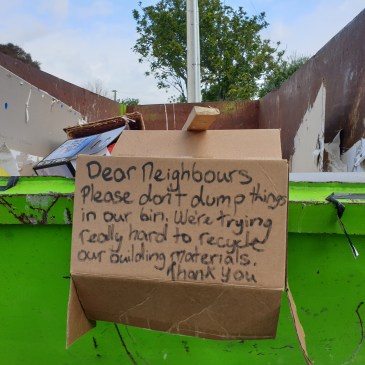 Dear Neighbours
Please don't dump things
in our bin. We're trying
really hard to recycle
our building materials.
Thank you